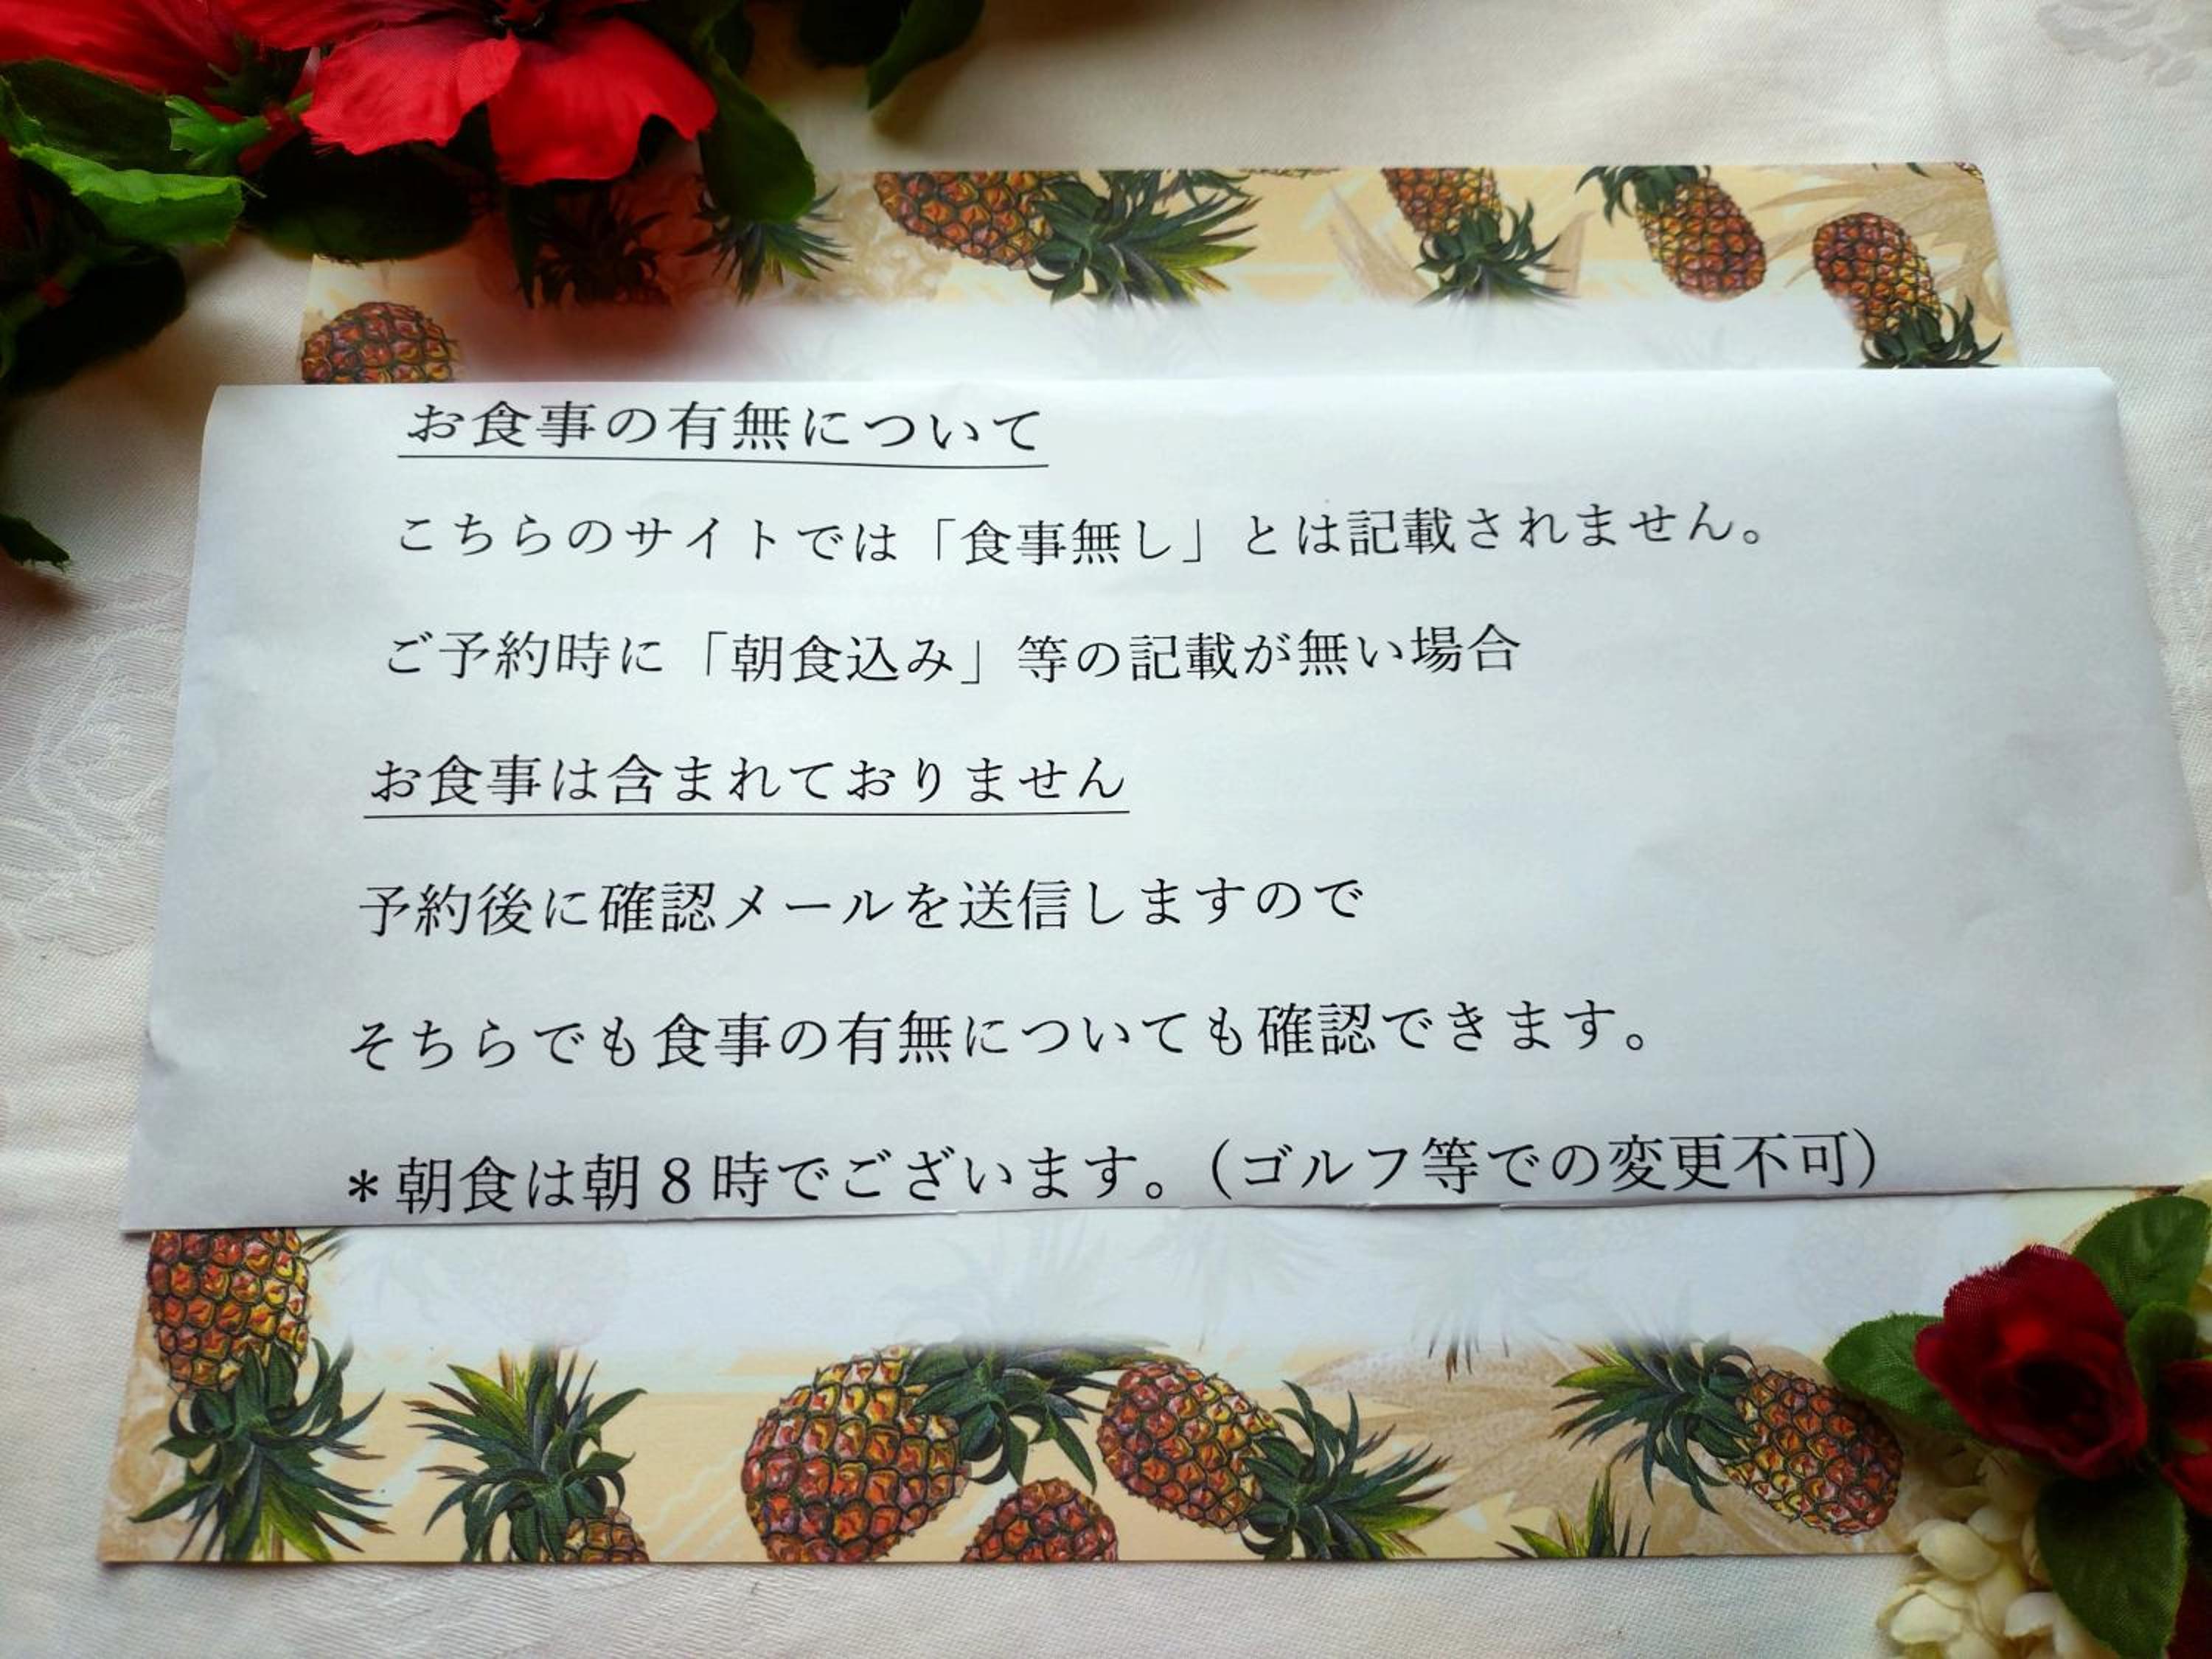 お食事の有無について
こちらのサイトでは「食事無し」とは記載されません。
ご予約時に「朝食込み」等の記載が無い場合
お食事は含まれておりません
予約後に確認メールを送信しますので
そちらでも食事の有無についても確認できます。
＊朝食は朝8時でございます。（ゴルフ等での変更不可）